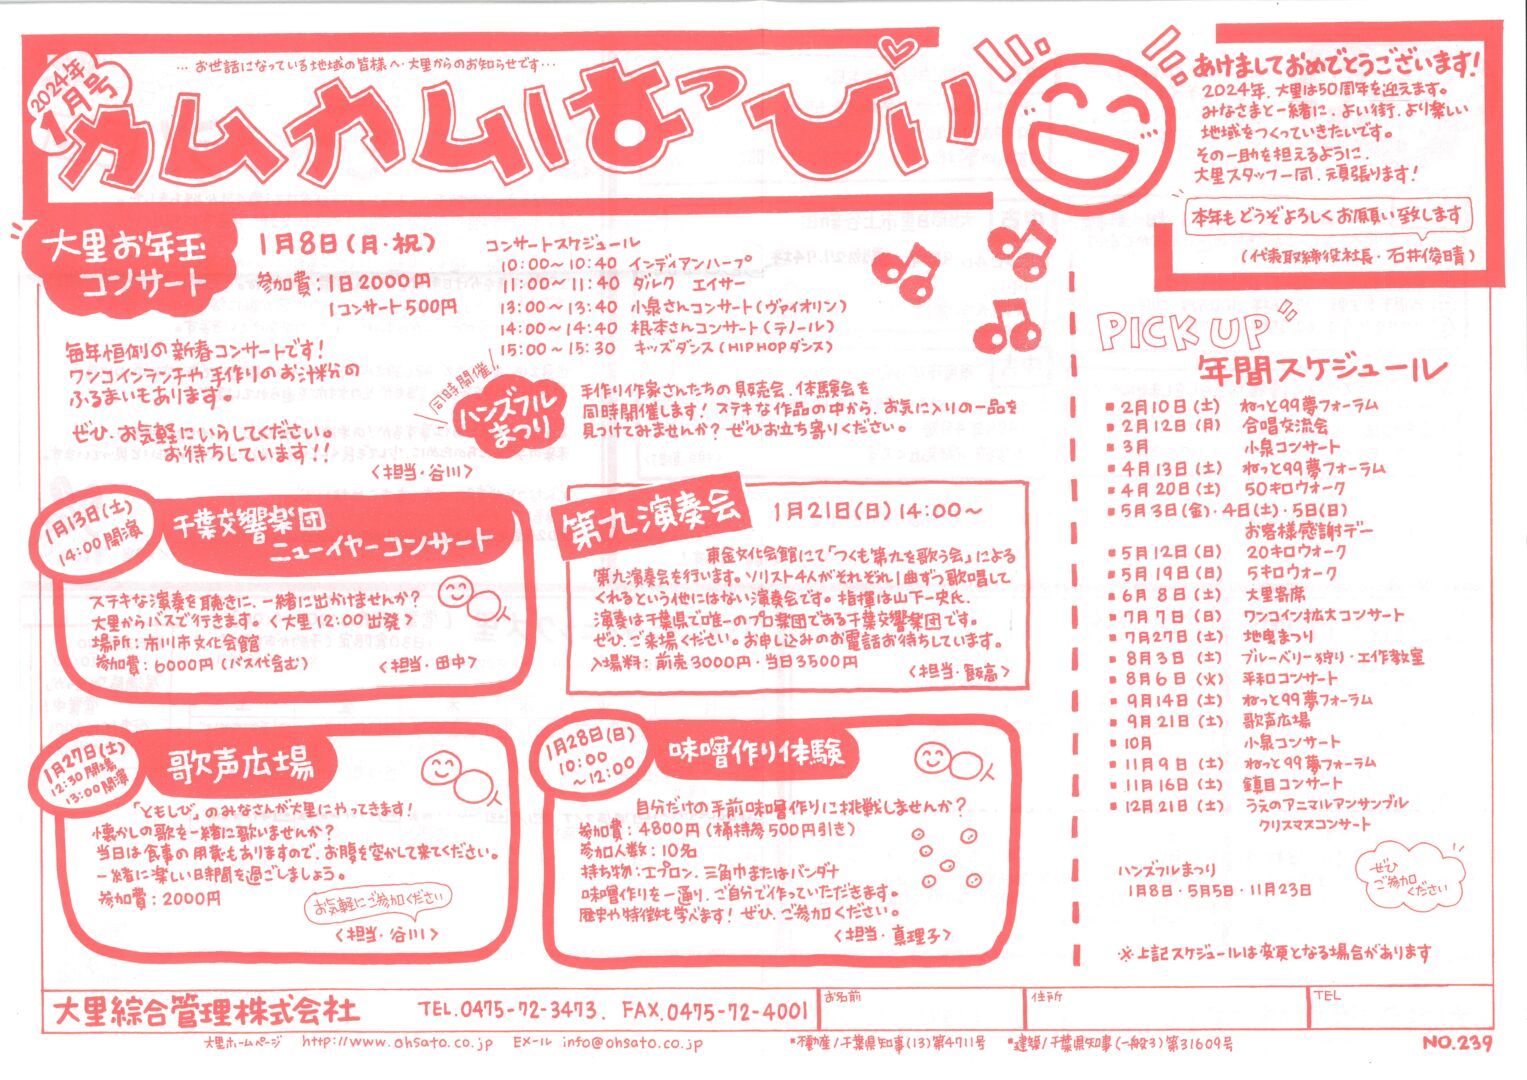 2024年
1月号
… お世話になっている地域の皆様へ・大里からのお知らせです…
カムカムはっぴぃ
あけましておめでとうございます!
2024年、大里は50周年を迎えます。
みなさまと一緒に、よい街、より楽しい
地域をつくっていきたいです。
その一助を担えるように、
大里スタッフ一同、頑張ります!
本年もどうぞよろしくお願い致します
(代表取締役社長・石井俊晴)
大里お年玉
コンサート
1月8日(月・祝)
参加費:1日2000円
1コンサート500円
コンサートスケジュール
10:00～10:40 インディアンハープ
11:00～11:40 ダルク エイサー
13:00～13:40 小泉さんコンサート(ヴァイオリン)
14:00～14:40 根本さんコンサート(テノール)
15:00～15:30 キッズダンス(HIPHOPダンス)
毎年恒例の新春コンサートです!
ワンコインランチや手作りのお汁粉の
ふるまいもあります。
ぜひ、お気軽にいらしてください。
お待ちしています!!
<担当・谷川>
同時開催!!
ハンズフル
まつり
手作り作家さんたちの販売会、体験会を
同時開催します! ステキな作品の中から、お気に入りの一品を
見つけてみませんか? ぜひお立ち寄りください。
1月13日(土)
14:00開演
千葉交響楽団
ニューイヤーコンサート
ステキな演奏を聴きに、一緒に出かけませんか?
大里からバスで行きます。<大里12:00出発>
場所:市川市文化会館
参加費:6000円(バス代含む)
<担当・田中>
第九演奏会
1月21日(日)14:00～
東金文化会館にて「つくも第九を歌う会」による
第九演奏会を行います。ソリスト4人がそれぞれ1曲ずつ歌唱して
くれるという他にはない演奏会です。指揮は山下一史氏、
演奏は千葉県で唯一のプロ楽団である千葉交響楽団です。
ぜひ、ご来場ください。お申し込みのお電話お待ちしています。
入場料:前売3000円・当日3500円
<担当・飯高>
1月27日(土)
12:30開場
13:00開演
歌声広場
「ともしび」のみなさんが大里にやってきます!
懐かしの歌を一緒に歌いませんか?
当日は食事の用意もありますので、お腹を空かして来てください。
一緒に楽しい時間を過ごしましょう。
参加費:2000円
お気軽にご参加ください
<担当・谷川>
1月28日(日)
10:00
～12:00
味噌作り体験
自分だけの手前味噌作りに挑戦しませんか?
参加費:4800円(桶持参500円引き)
参加人数:10名
持ち物:エプロン、三角巾またはバンダナ
味噌作りを一通り、ご自分で作っていただきます。
歴史や特徴も学べます! ぜひ、ご参加ください。
<担当・真理子>
PICK UP
年間スケジュール
▪2月10日(土) ねっと99夢フォーラム
▪2月12日(月) 合唱交流会
▪3月 小泉コンサート
▪4月13日(土) ねっと99夢フォーラム
▪4月20日(土) 50キロウォーク
▪5月3日(金)・4日(土)・5日(日)
お客様感謝デー
▪5月12日(日) 20キロウォーク
▪5月19日(日) 5キロウォーク
▪6月8日(土) 大里寄席
▪7月7日(日) ワンコイン拡大コンサート
▪7月27日(土) 地曳まつり
▪8月3日(土) ブルーベリー狩り・工作教室
▪8月6日(火) 平和コンサート
▪9月14日(土) ねっと99夢フォーラム
▪9月21日(土) 歌声広場
▪10月 小泉コンサート
▪11月9日(土) ねっと99夢フォーラム
▪11月16日(土) 鎮目コンサート
▪12月21日(土) うえのアニマルアンサンブル
クリスマスコンサート
ハンズフルまつり
1月8日・5月5日・11月23日
ぜひ
ご参加
ください
※上記スケジュールは変更となる場合があります
大里綜合管理株式会社 TEL.0475-72-3473. FAX.0475-72-4001
お名前
住所
TEL
大里ホームページ http://www.ohsato.co.jp Eメール info@ohsato.co.jp
▪不動産/千葉県知事(13)第4711号 ▪建築/千葉県知事(一般3)第31609号
NO.239